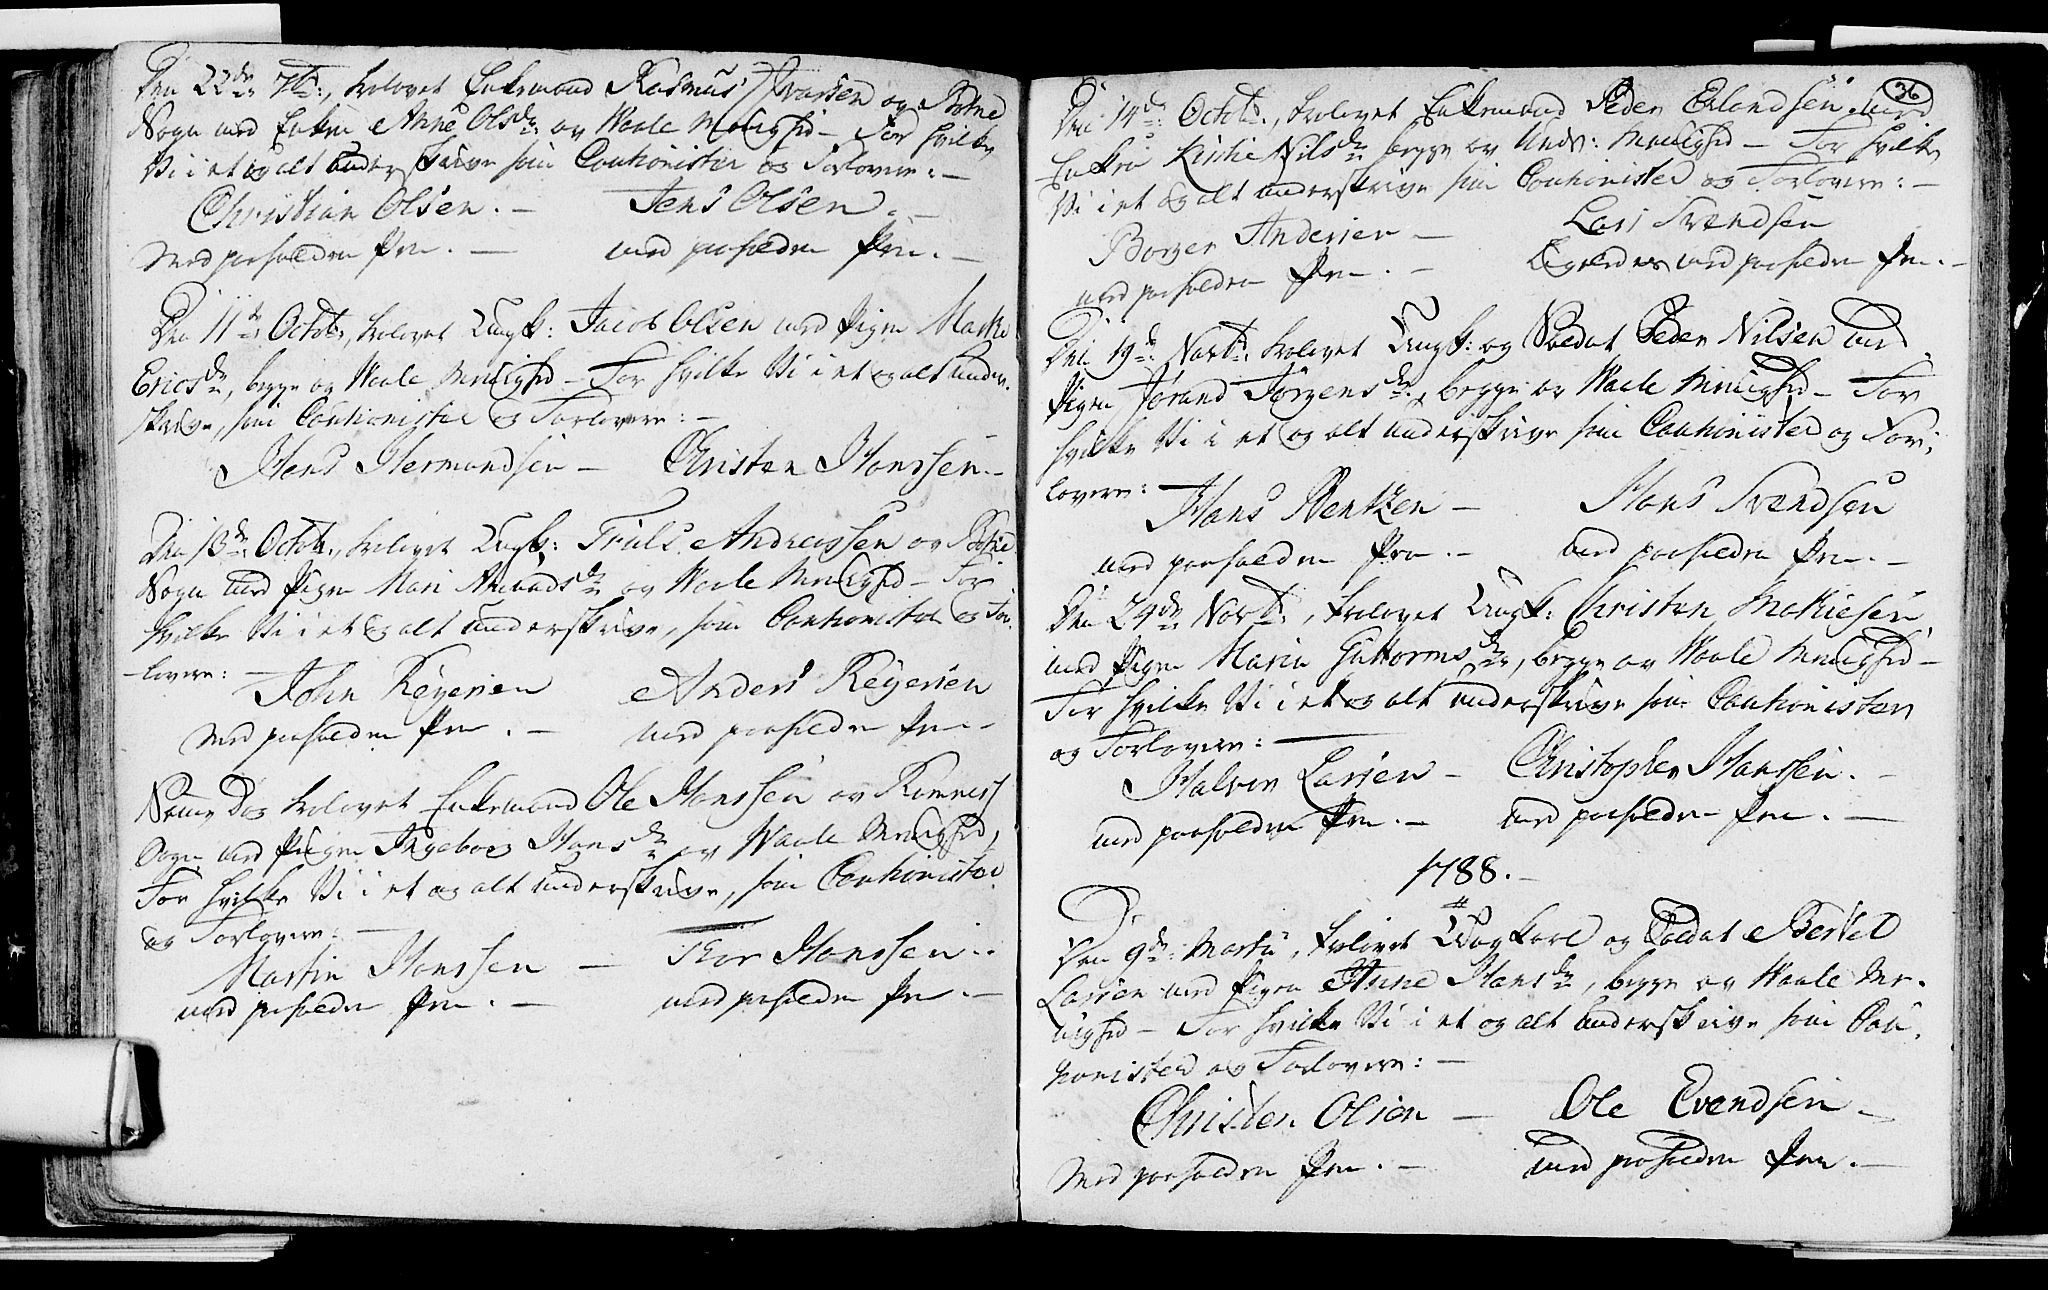 Den 22de 7br:, trolovet Enkemand Rasmus Ivarsen og Botne
Sogn med Enken Anne Olsdr: av Waale Menighed – For hvilke
Vi i et og alt underskrive som Cautionister og Forlovere: –
Christian Olsen. – Jens Olsen. –
med paaholden Pen. – med paaholden Pen. –
Den 11te Octobr, trolovet Ungk: Jacob Olsen med Pigen Marthe
Ericsdr, begge av Waale Menighed – For hvilke Vi i et og alt under-
skrive, som Cautionister og Forlovere: –
Hans Hermandsen – Christen Hanssen. –
Den 13de Octobr., trolovet Ungk: Truls Andreassen av Botne
Sogn med Pigen Mari Amundsdr av Waale Menighed – For
hvilke Vi i et og alt underskrive, som Cautionister og For-
lovere: –
John Reyersen Anders Reyersen
med paaholden Pen. – med paaholden Pen –
Samme Dag trolovet Enkemand Ole Hanssen av Ramnes
Sogn med Pigen Ingeborg Hansdr av Waale Menighed,
For hvilke Vi i et og alt underskrive, som Cautionister
og Forlovere: –
Martin Hanssen – Thor Hanssen. –
med paaholden Pen. – med paaholden Pen. –
36
Den 14de Octobr., trolovet Enkemand Peder Erlandsen med
Enken Kirstie Nilsdr begge av Unds: Menighed – For hvilke
Vi i et og alt underskrive som Cautionister og Forlovere: –
Borger Andersen – Lars Svendsen
med paaholden Pen. – Ligeledes med paaholden Pen. –
Den 19de Novbr. trolovet Ungk: og Soldat Peder Nilsen med
Pigen Jørand Jørgensdr, begge av Waale Menighed – For
hvilke Vi i et og alt underskrive som Cautionister og For-
lovere:
Hans Bentzen – Hans Svendsen
med paaholden Pen. – med paaholden Pen. –
Den 24de Novbr:, trolovet Ungk: Christen Mathiesen,
med Pigen Maria Guttormsdr, begge av Waale Menighed –
For hvilke Vi i et og alt underskrive som Cautionister
og Forlovere: –
Halvor Larsen – Christopher Hanssen. –
med paaholden Pen. – med paaholden Pen. –
1788. –
Den 9de Martii, trolovet Ungkarl og Soldat Bertel
Larsen med Pigen Anne Hansdr, begge av Waale Me-
nighed – For hvilke Vi i et og alt underskrive som Cau-
tionister og Forlovere: –
Christen Olsen – Ole Evendsen –
med paaholden Pen. – med paaholden Pen. –